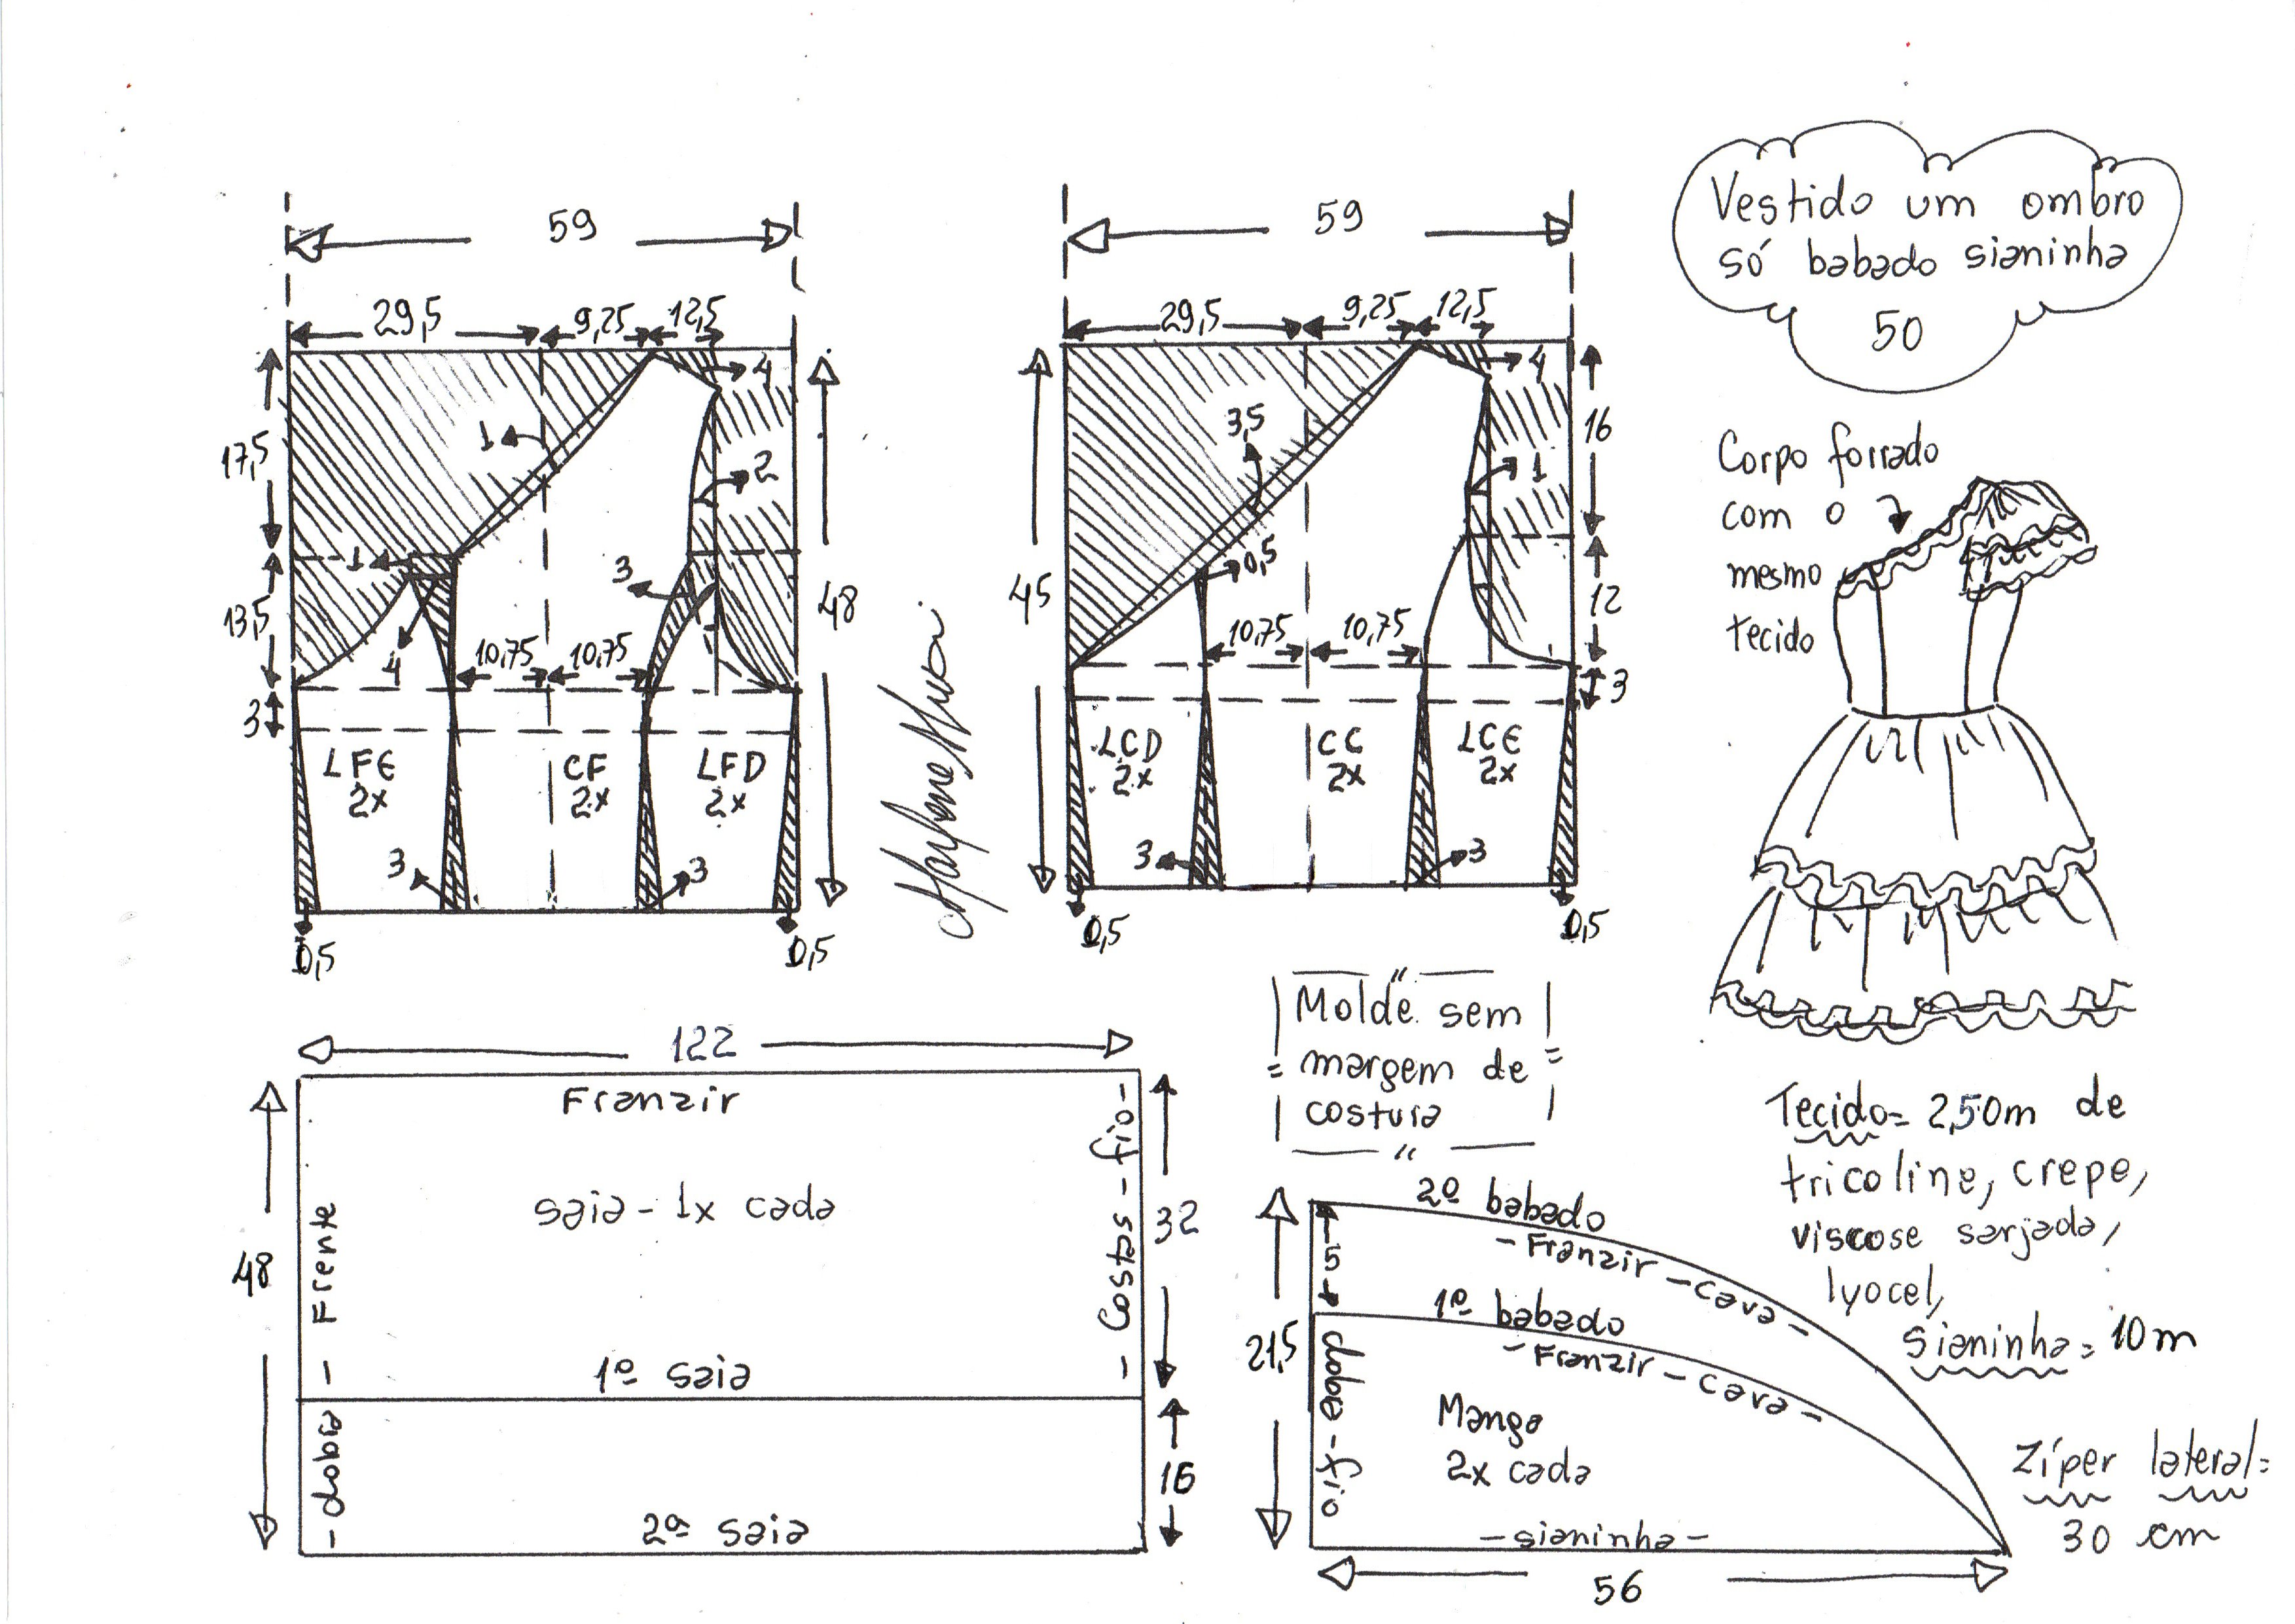 Vestido um ombro
só babado sianinha
50
59
29,5
9,25
12,5
4
17,5
1
2
1
3
13,5
4
10,75
10,75
48
3
LFE
2x
CF
2x
LFD
2x
3
3
0,5
0,5
Marlene Mukai
59
29,5
9,25
12,5
4
3,5
1
16
0,5
45
10,75
10,75
12
3
LCD
2x
CC
2x
LCE
2x
3
3
0,5
0,5
Corpo forrado
com o
mesmo
tecido
Molde sem
margem de
costura
122
Franzir
saia - 1x cada
48
- dobra - Frente
- Costas - fio -
32
1ª saia
16
2ª saia
2º babado
- Franzir - cava -
5
1º babado
- Franzir - cava -
21,5
dobra - fio
Manga
2x cada
- sianinha -
56
Tecido = 2,50m de
tricoline, crepe,
viscose sarjada,
lyocel,
sianinha = 10m
Zíper lateral =
30 cm